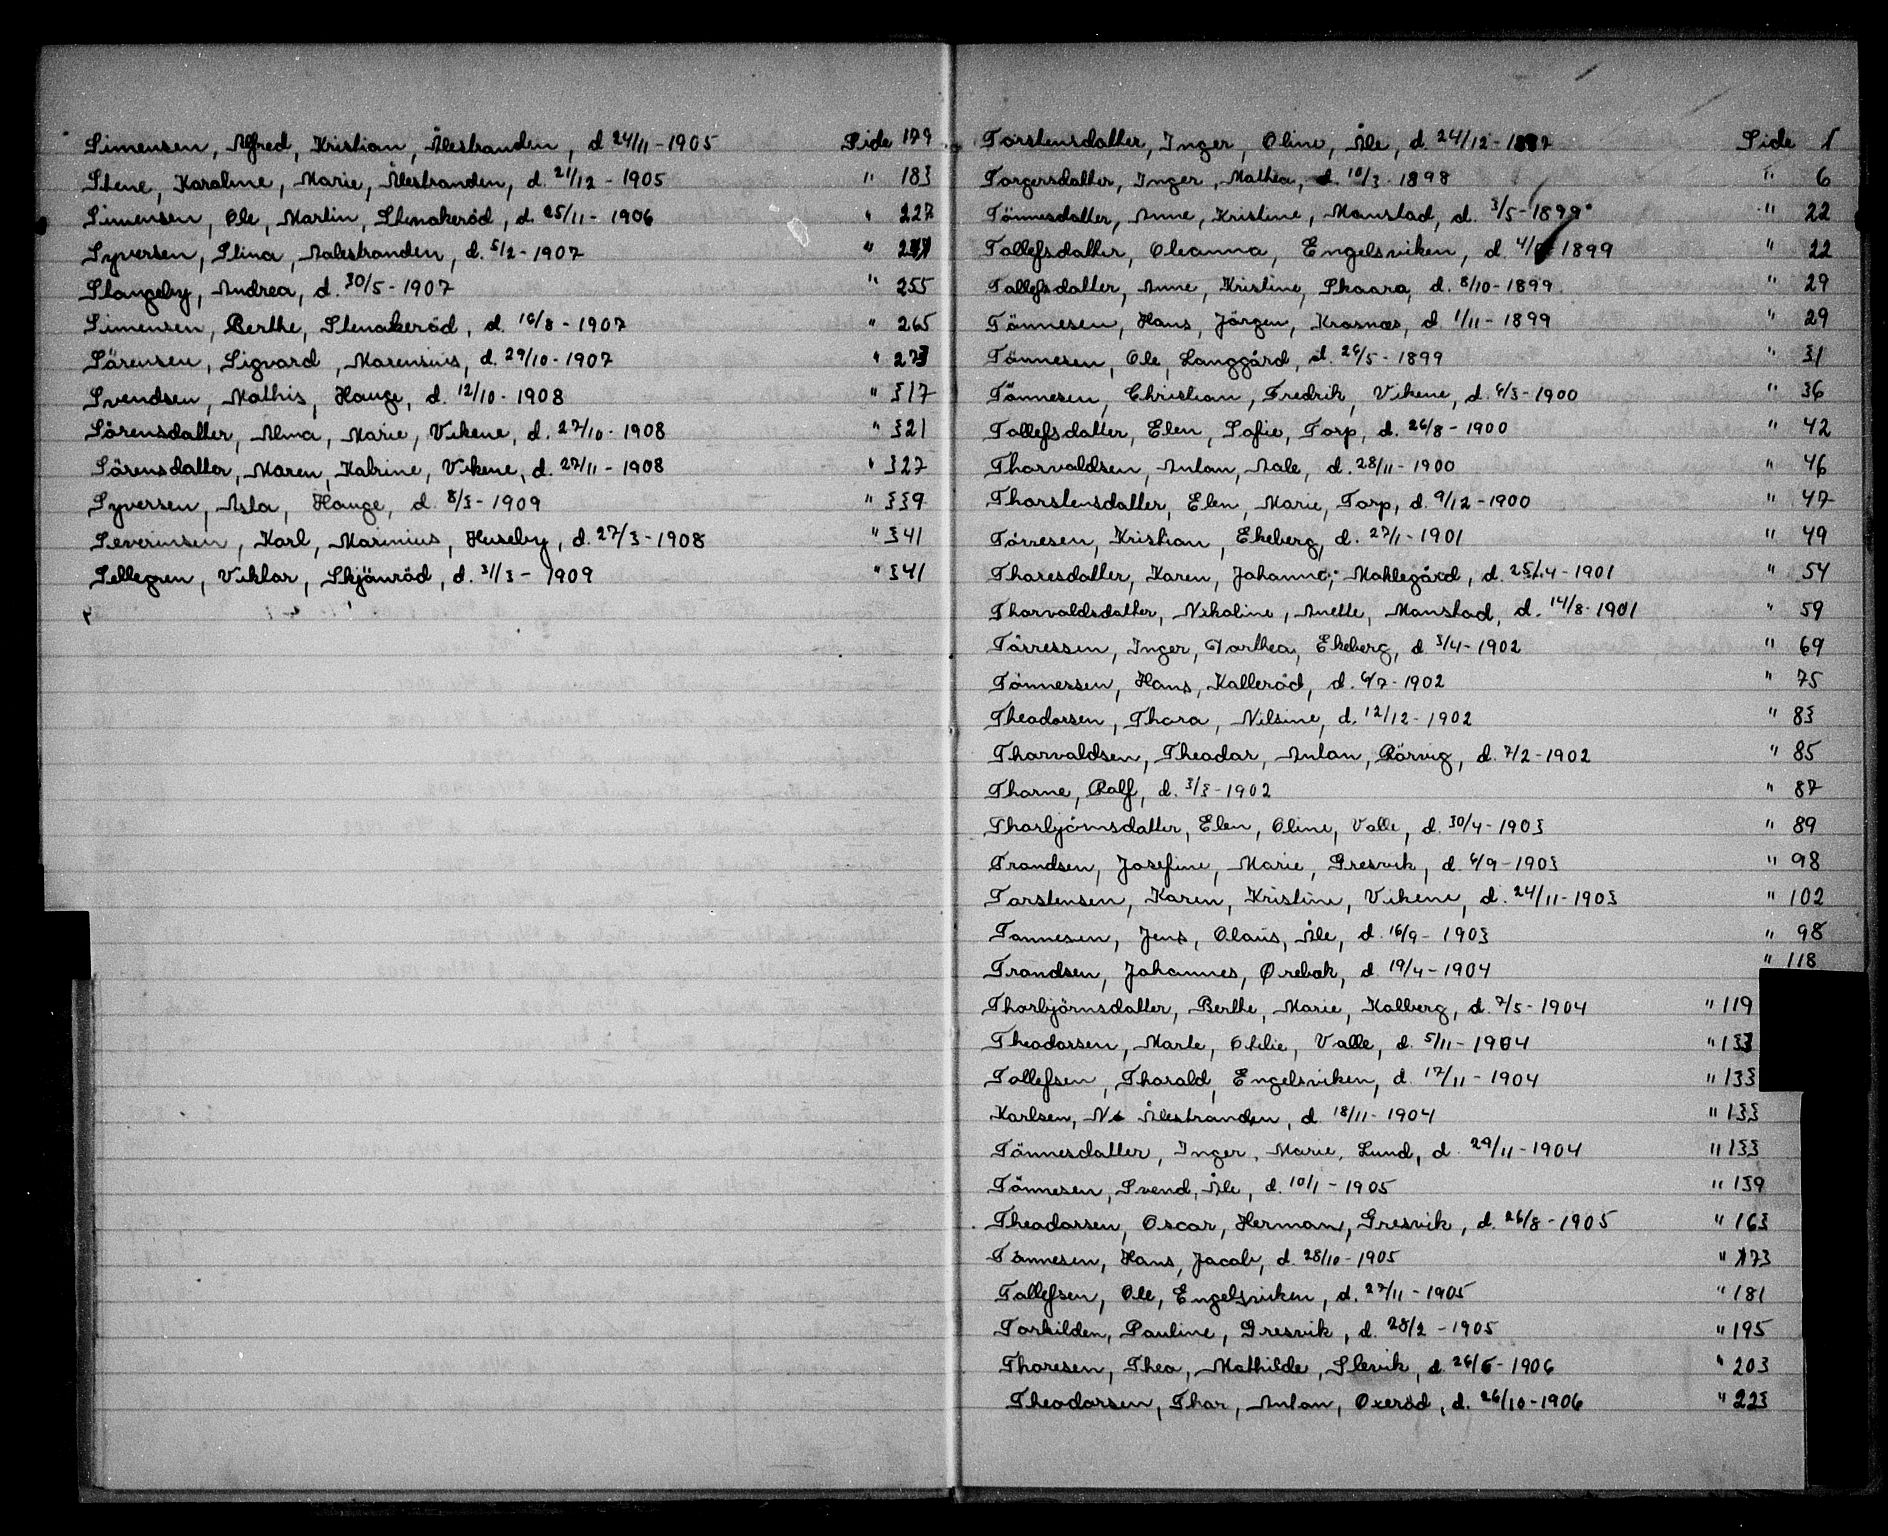 Simensen, Alfred, Kristian, Ålestranden, d 24/11-1905 Side 179
Stene, Karoline, Marie, Ålestranden, d. 21/12 - 1905 " 183
Simensen, Ole, Martin, Stenakeröd, d. 25/11 - 1906 " 227
Syversen, Stina, Aalestranden, d. 5/2 - 1907 "
Slangeby, Andrea, d. 30/5 - 1907 " 255
Simensen, Berthe, Stenakeröd, d. 16/8 - 1907 " 265
Sörensen, Sigvard, Marensius, d. 29/10 - 1907 " 273
Svendsen, Mathis, Hauge, d. 12/10 - 1908 " 317
Sörensdatter, Alma, Marie, Vikene, d. 27/10 - 1908 " 321
Sörensdatter, Maren, Katrine, Vikene, d. 27/11 - 1908 " 327
Syversen, Asta, Hauge, d. 8/3 - 1909 " 339
Severinsen, Karl, Marinius, Huseby, d. 27/3 - 1908 " 341
Sellegren, Viktor, Skjönröd, d. 31/3 - 1909 " 341
Torstensdatter, Inger, Oline, Åle, d. 24/12 - 1897 Side 1
Torgersdatter, Inger, Mathea, d. 10/3 - 1898 " 6
Tönnesdatter, Anne, Kristine, Monstad, d. 3/5 - 1899 " 22
Tollefsdatter, Oleanna, Engelsviken, d. 4/ 1899 " 22
Tollefsdatter, Anne, Kristine, Skaara, d. 8/10 - 1899 " 29
Tönnesen, Hans, Jörgen, Krosnæs, d. 1/11 - 1899 " 29
Tönnesen, Ole, Langgård, d. 26/5 - 1899 " 31
Tönnesen, Christian, Fredrik, Vikene, d. 6/3 - 1900 " 36
Tollefsdatter, Elen, Sofie, Torp, d. 26/8 - 1900 " 42
Thorvaldsen, Anton, Aale, d. 28/11 - 1900 " 46
Thorstensdatter, Elen, Marie, Torp, d. 9/12 - 1900 " 47
Törresen, Kristian, Ekeberg, d. 27/1 - 1901 " 49
Thoresdatter, Karen, Johanne, Moklegård, d. 25/4 - 1901 " 54
Thorvaldsdatter, Nikoline, Anette, Monstad, d. 14/8 - 1901 " 59
Törressen, Inger, Dorthea, Ekeberg, d. 3/4 - 1902 " 69
Tönnessen, Hans, Kalleröd, d. 6/7 - 1902 " 75
Theodorsen, Thora, Nilsine, d. 12/12 - 1902 " 83
Thorvaldsen, Theodor, Anton, Rörvig, d. 7/2 - 1902 " 85
Thorne, Rolf, d. 3/3 - 1902 " 87
Thorbjörnsdatter, Elen, Oline, Valle, d. 30/4 - 1903 " 89
Trondsen, Josefine, Marie, Gresvik, d. 6/9 - 1903 " 98
Torstensen, Karen, Kristine, Vikene, d. 24/11 - 1903 " 102
Tonnesen, Jens, Olaus, Åle, d. 16/9 - 1903 " 98
Trondsen, Johannes, Ørebæk, d 19/4 - 1904 " 118
Thorbjörnsdatter, Berthe, Marie, Kolberg, d. 7/5 - 1904 " 119
Theodorsen, Marte, Otilie, Valle, d. 5/11 - 1904 " 133
Tollefsen, Thorald, Engelsviken, d. 17/11 - 1904 " 133
Karlsen, N. Ålestranden, d 18/11 - 1904 " 133
Tönnesdatter, Inger, Marie, Lund, d. 29/11 - 1904 " 133
Tönnesen, Svend, Åle, d. 10/1 - 1905 " 139
Theodorsen, Oscar, Herman, Gresvik, d. 26/8 - 1905 " 163
Tönnesen, Hans, Jacob, d. 28/10 - 1905 " 173
Tollefsen, Ole, Engelsviken, d. 27/11 - 1905 " 181
Torkilden, Pauline, Gresvik, d. 28/2 - 1905 " 195
Thoresen, Thea, Mathilde, Slevik, d. 26/5 - 1906 " 203
Theodorsen, Thor, Anton, Oxeröd, d. 26/10 - 1906 " 223